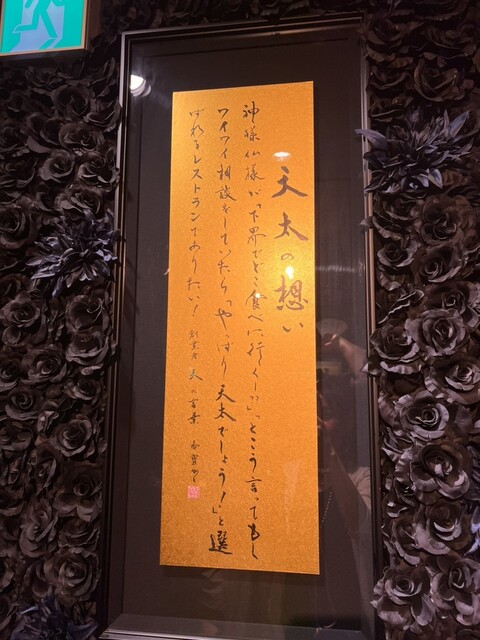 天太の想い
神様仏様が「下界でどこ食べに行くー??」とこう言ってもし
ワイワイ相談をしていたら「やっぱり天太でしょう！」と選
ばれるレストランでありたい！ 創業者 の言葉